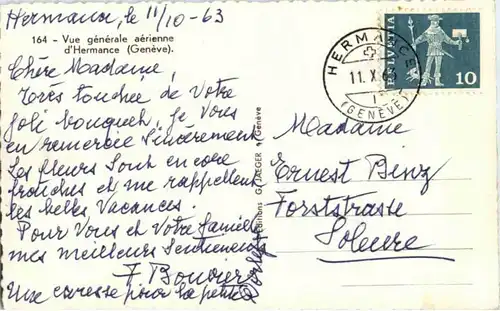 Hermance, le 11/10-63
164 - Vue générale aérienne
d'Hermance (Genève).
Chère Madame,
Très touchée de Votre
joli bouquet, je Vous
en remercie Sincèrement
Les fleurs sont encore
fraîches et me rappellent
les belles Vacances.
Pour Vous et Votre famille
mes meilleurs Sentiments
F. Bouvier
Une caresse pour la petite
Editions JAEGER Genève
HERMANCE
11.X.63
(GENÈVE)
HELVETIA
10
Madame
Ernest Benz
Forststrasse
Soleure